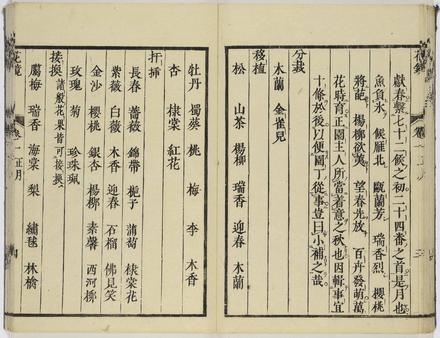 花鏡
獻春繫七十二候之初二十四番之首是月也
魚負氷 候雁北 甌蘭芳 瑞香烈 櫻桃
將葩 楊柳欲荑 望春先放 百卉發萌萬
花時育正園主人所當着意之秋也因輯事宜
十條於後以便園丁從事豈曰小補之哉
分栽
木蘭 金雀兒
移植
松 山茶 楊柳 瑞香 迎春 木蘭
牡丹 蜀葵 桃 梅 李 木香
杏 棣棠 紅花
扦插
長春 薔薇 錦帶 梔子 蒲萄 棣棠花
紫薇 白薇 木香 迎春 石榴 佛見笑
金沙 櫻桃 銀杏 楊柳 素馨 西河柳
玫瑰 菊 珍珠珮
接換 諸般花果皆可接換
臈梅 瑞香 海棠 梨 繡毬 林檎
花鏡 卷一 正月